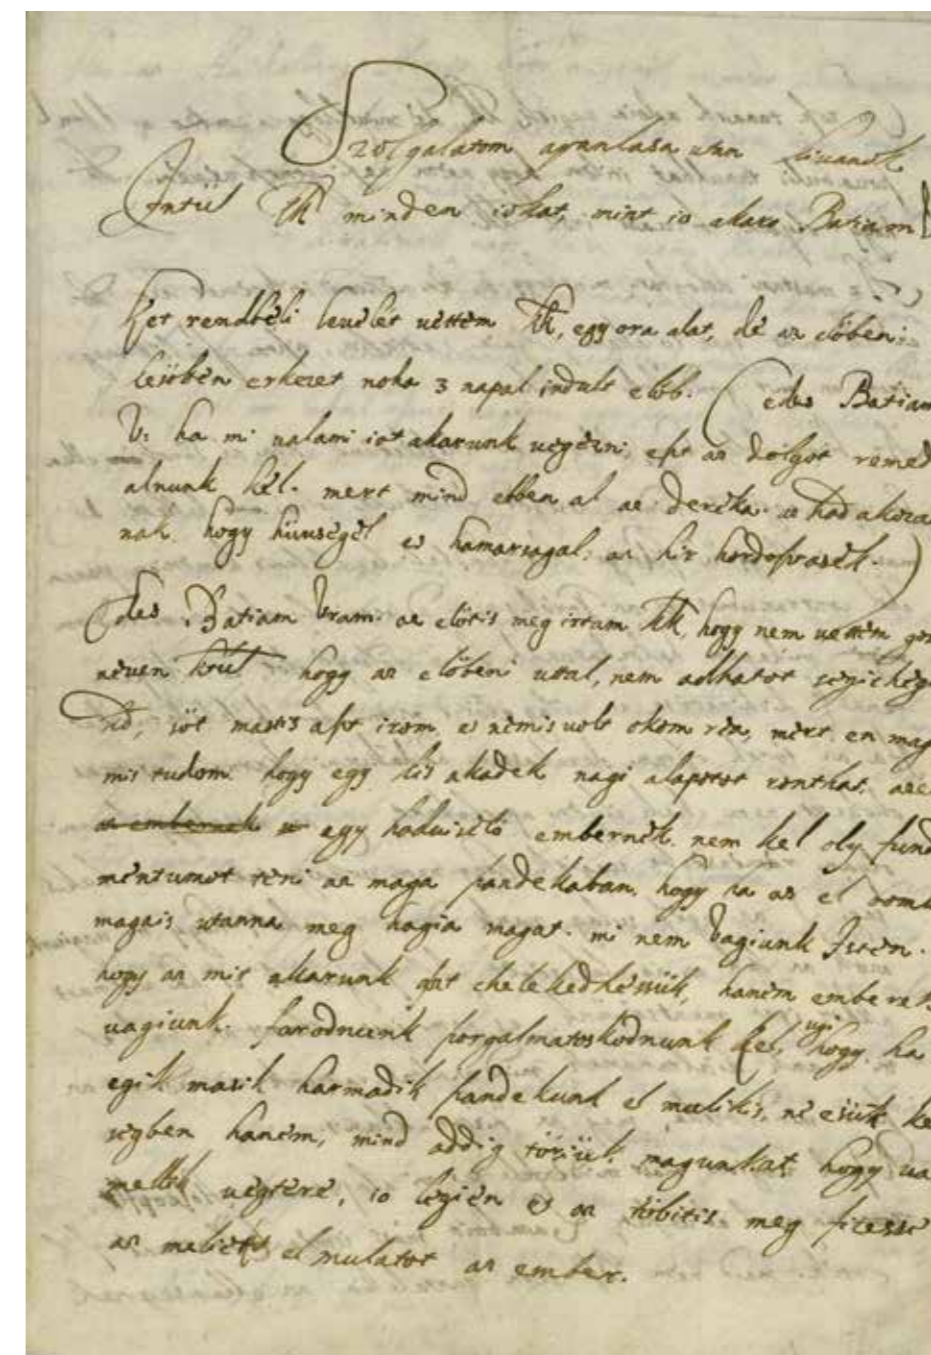 Szolgalatom aianlasa utan kivanok
Intul Kk minden iokat, mint io akaro Batiam
Ket rendbeli levelet vettem Kk, egy ora alat, de az elöbeni
kesöben erkezet noha 3 napal indult elöb. (edes Batiam
V: ha mi valami iot akarunk vegezni, ezt az dolgot remed
alnunk kel. mert mind ebben al az dereka. a had akoza
nak hogy hiuseggel es hamarsagal: az hir hordoztasek. )
Edes Batiam Vram: az elöt is meg irtam Kk, hogy nem vettem gon
neven hogy az elöbeni uttal, nem adhatot segicheg
söt mastis azt irom, es nemis volt okom rea, mert en mag
mis tudom hogy egy kis akadek nagi alapotot ronthat.
az embernek egy hadviselö embernek, nem kel oly fund
mentumot tenni az maga zandekaban, hogy ha az el romu
magais utanna meg hagia magat. mi nem Vagiunk Isten.
hogy az mit akarunk azt chelekedhessük, hanem emberek
vagiunk. faradnunk zorgalmatoskodnunk kel, ugi hogy, ha
egik masik harmadik zandekunk el mulikis, ne essük ke
segben hanem, mind addig törjük magunkat, hogy va
mellik vegtere, io legien es az többitis meg fizesse
az meliett el mulatot az ember.